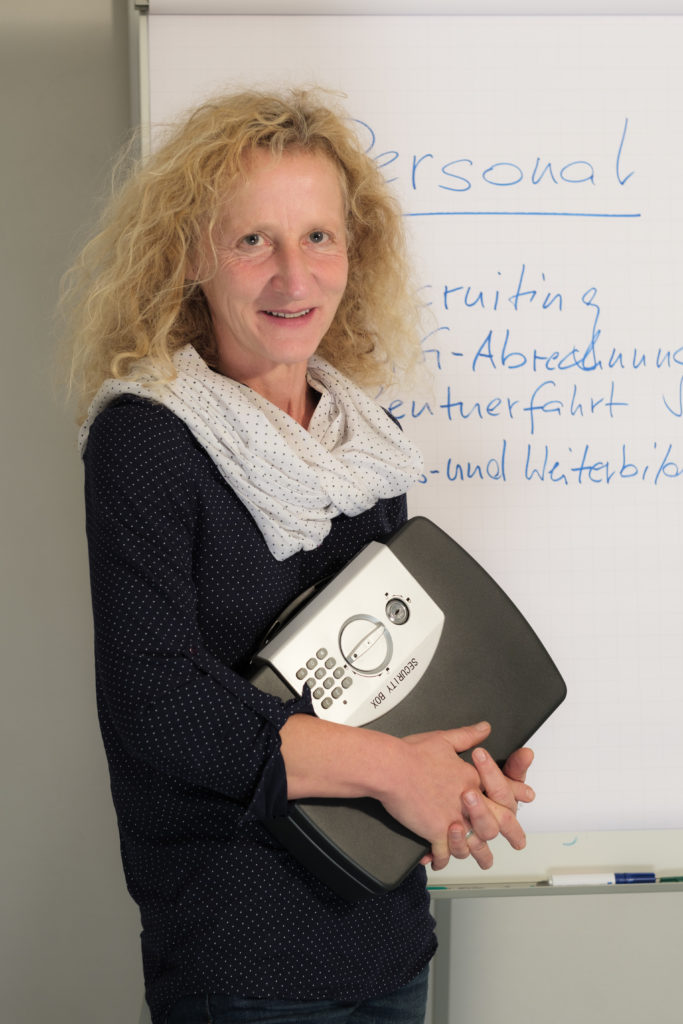 Personal
cruiting
G-Abrechnung
entnerfahrt
s-und Weiterbil
SECURITY BOX